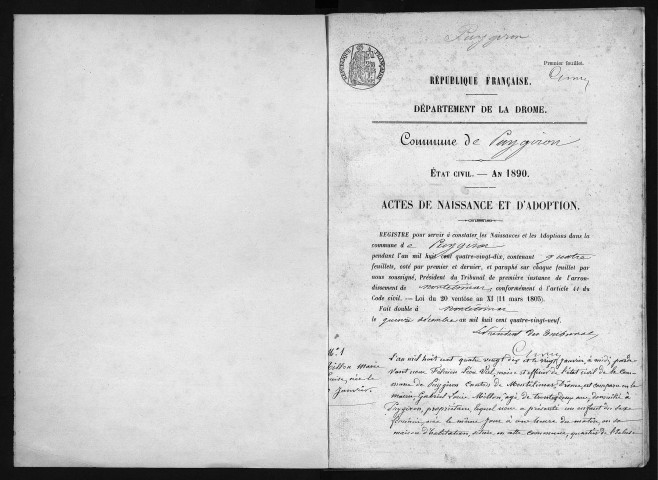 Puygiron
Premier feuillet.
RÉPUBLIQUE FRANÇAISE.
DÉPARTEMENT DE LA DROME.
Commune de Puygiron
ÉTAT CIVIL. — AN 1890.
ACTES DE NAISSANCE ET D'ADOPTION.
REGISTRE pour servir à constater les Naissances et les Adoptions dans la
commune de Puygiron
pendant l'an mil huit cent quatre-vingt-dix, contenant quatre
feuillets, coté par premier et dernier, et paraphé sur chaque feuillet par
nous soussigné, Président du Tribunal de première instance de l'arron-
dissement de Montélimar, conformément à l'article 41 du
Code civil. — Loi du 20 ventôse an XI (11 mars 1803).
Fait double à Montélimar
le quinze décembre an mil huit cent quatre-vingt-neuf.
Le Président du Tribunal,
N° 1
Millon Marie
née le
Janvier
L'an mil huit cent quatre vingt dix et le vingt janvier, à midi, parde
vant nous Fabricien Léon Viel, maire et officier de l'état civil de la Com
mune de Puygiron Canton de Montélimar, Drôme, est comparu en la
mairie, Gabriel Louis Millon, âgé de trente deux ans, domicilié à
Puygiron, propriétaire, lequel nous a présenté un enfant du sexe
féminin, née le même jour à une heure du matin, en sa
maison d'habitation, située en cette commune, quartier de